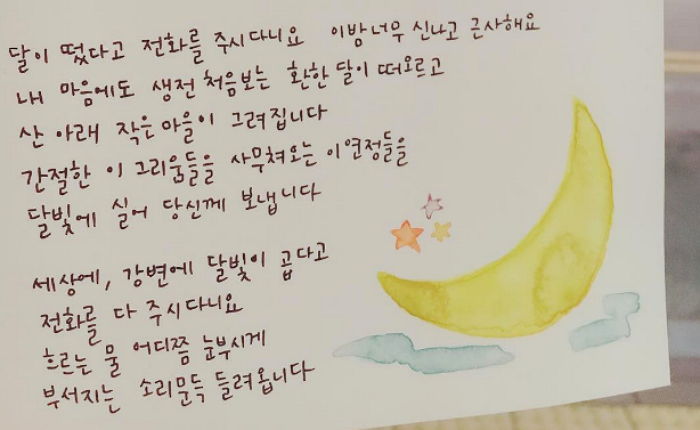 달이 떴다고 전화를 주시다니요 이밤 너무 신나고 근사해요
내 마음에도 생전 처음보는 환한 달이 떠오르고
산 아래 작은 마을이 그려집니다
간절한 이 그리움들을 사무쳐오는 이 연정들을
달빛에 실어 당신께 보냅니다
세상에, 강변에 달빛이 곱다고
전화를 다 주시다니요
흐르는 물 어디쯤 눈부시게
부서지는 소리 문득 들려옵니다